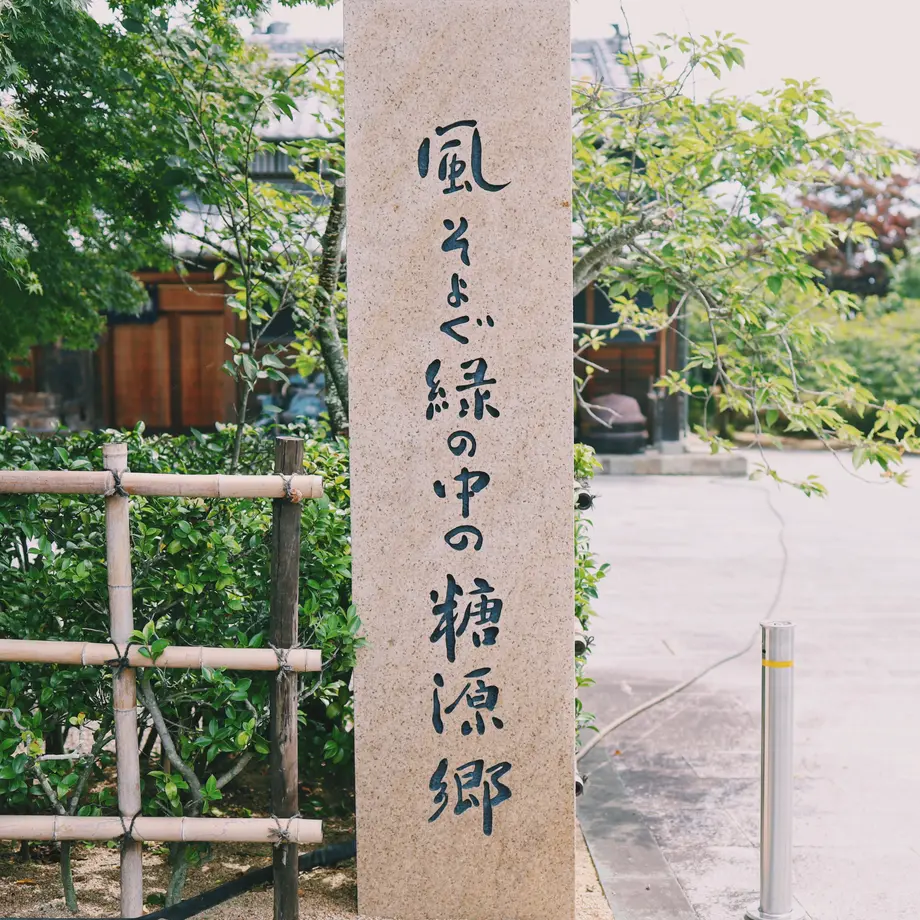 風そよぐ緑の中の糖源郷